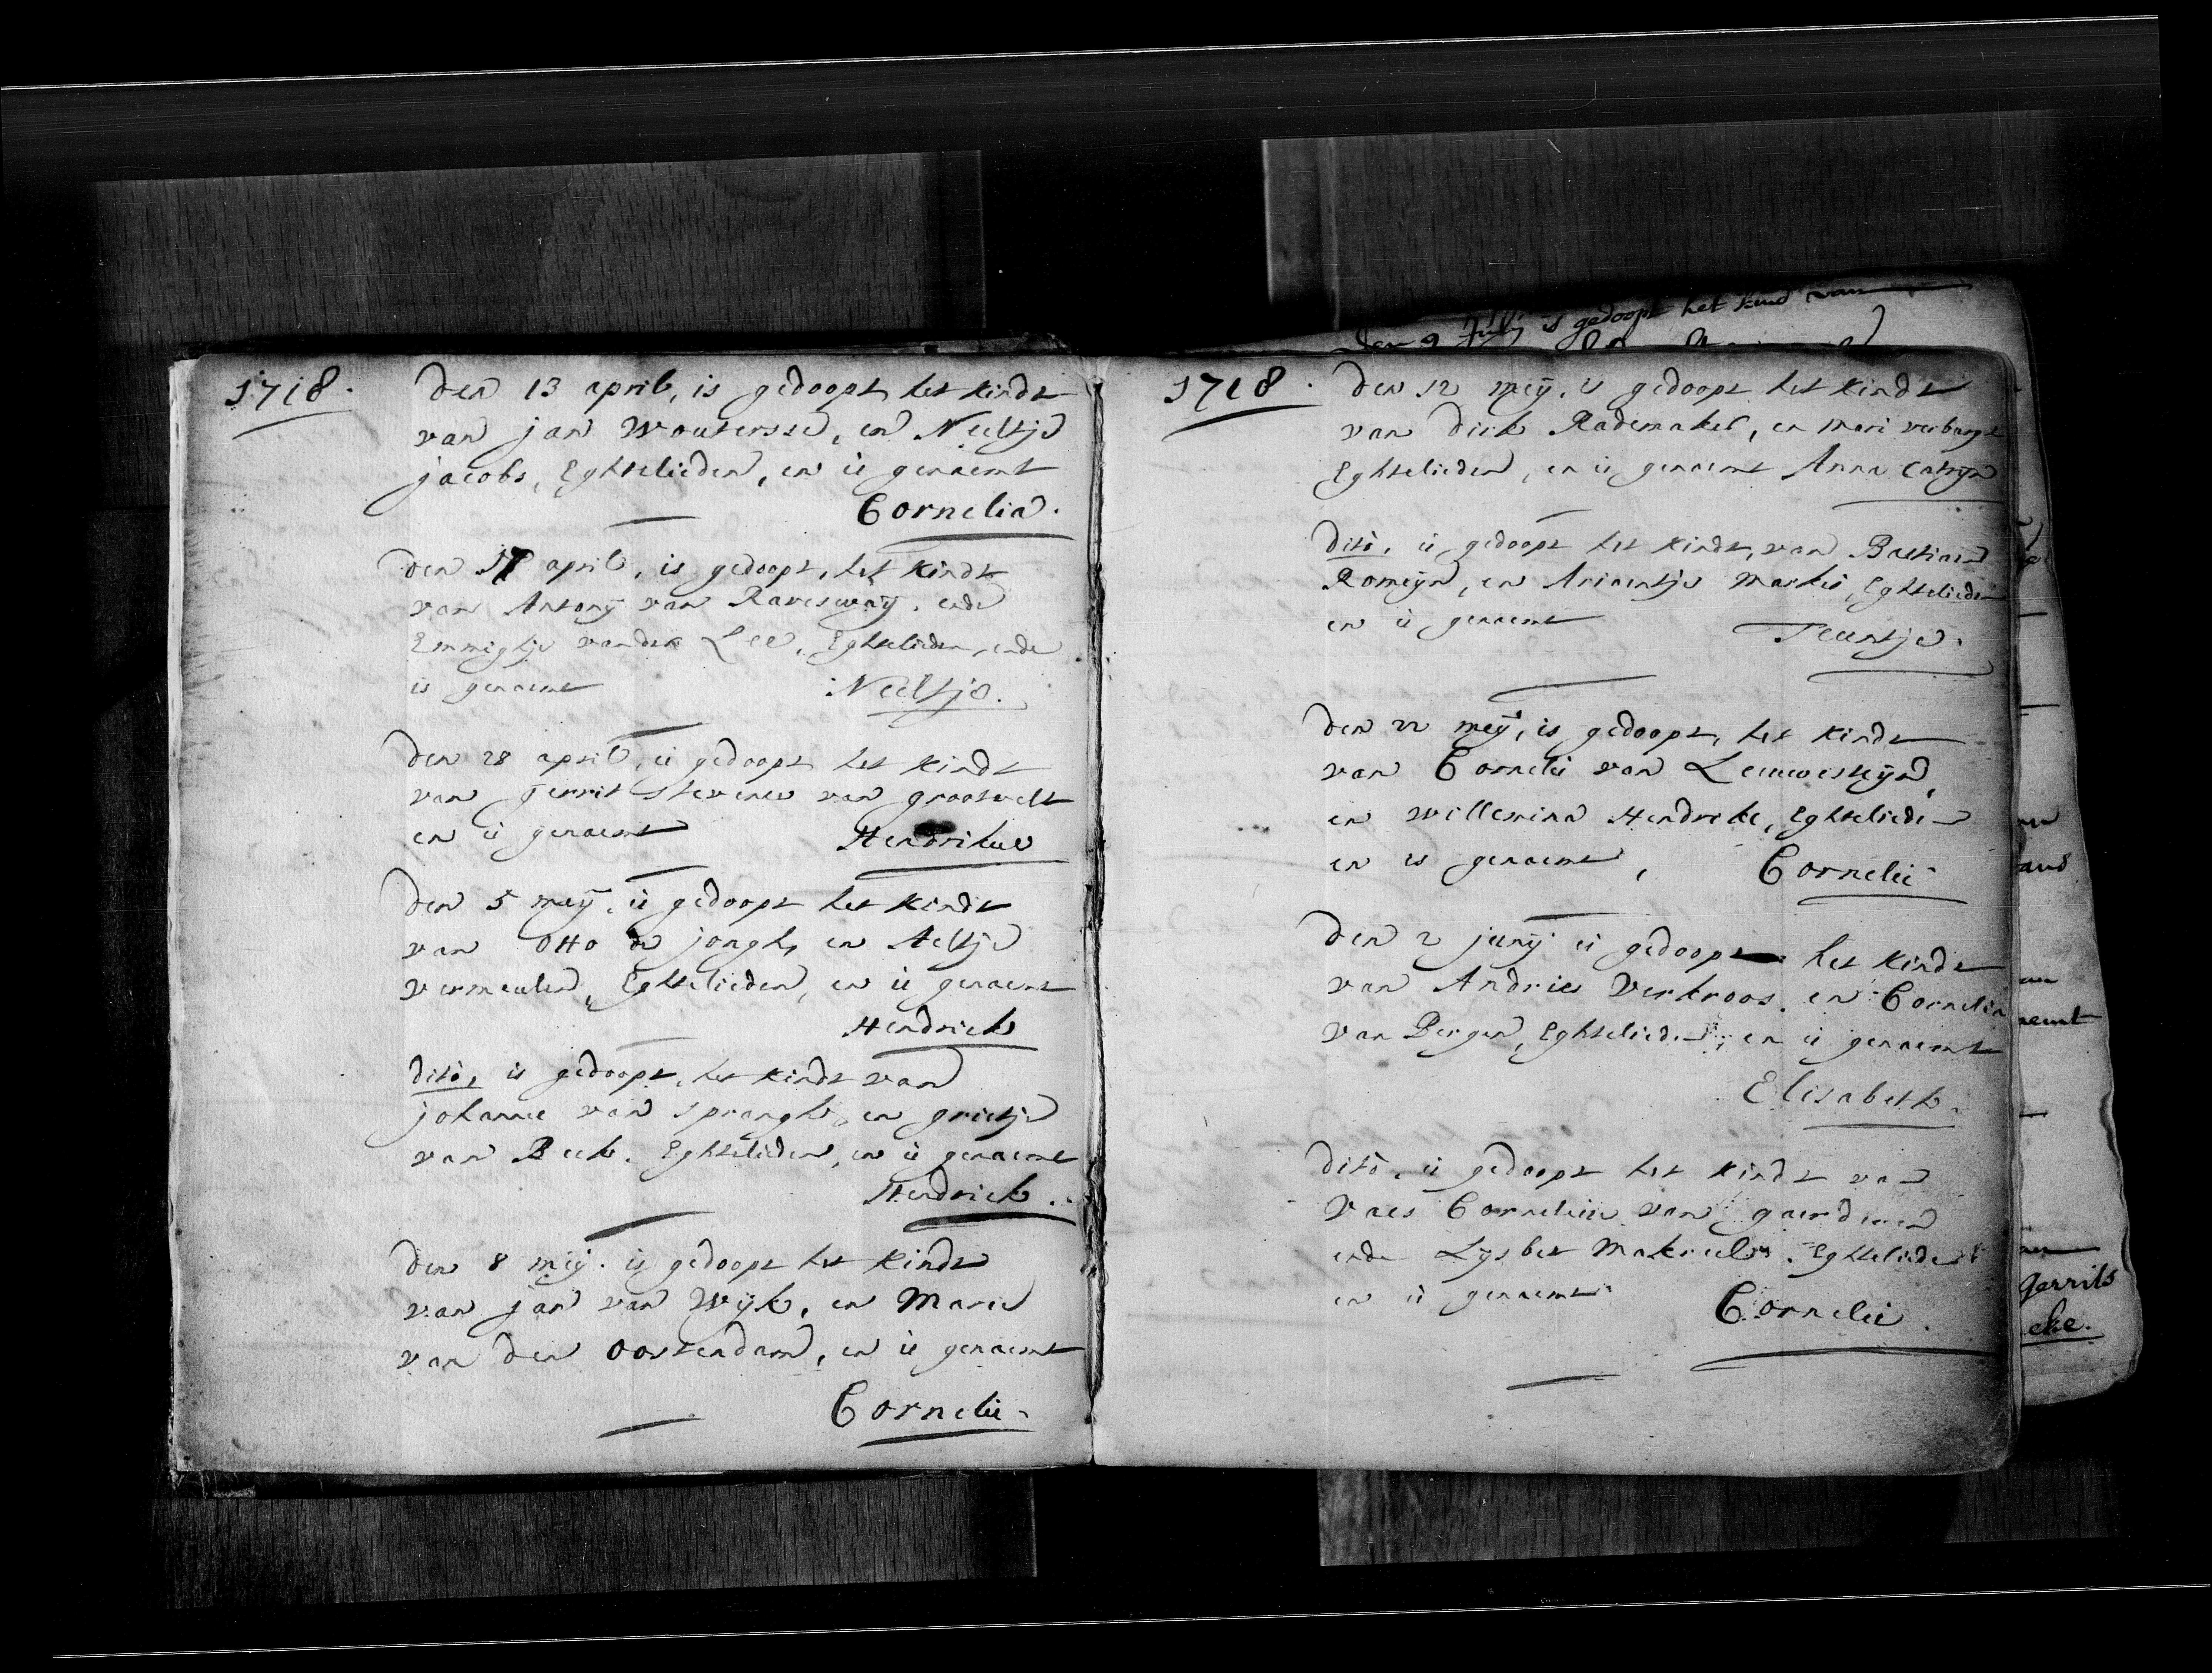 1718.
Den 13 april, is gedoopt het kindt
van jan Woutersse, en Neeltje
jacobs, Eghtelieden, en is genaemt
Cornelia.
Den 17 april, is gedoopt, het kindt
van Antonÿ van Raveswaÿ, ende
Emmightje vander Lee, Eghtelieden, ende
is genaemt Neeltje.
Den 28 april, is gedoopt het kindt
van Gerrit Stevense van grootvelt
en is genaemt Hendrikus
Den 5 meÿ, is gedoopt het kindt
van Otto de jongh, en Aeltje
vermeulen, Eghtelieden, en is genaemt
Hendrick
dito, is gedoopt, het kindt van
johannes van Sprangh, en grietje
van Beek, Eghtelieden, en is genaemt
Hendrick.
Den 8 meÿ. is gedoopt het kindt
van jan van Wÿk, en Maria
van den Oostendam, en is genaemt
Cornelis
1718.
Den 12 meÿ, is gedoopt het kindt
van Dirk Rademaker, en Mari
Eghtelieden, en is genaemt Anna Catrÿn
dito, is gedoopt het kindt, van Bastiaen
Romeÿn, en Ariaentje Markis, Eghtelieden
en is genaemt Teuntje.
Den 22 meÿ, is gedoopt, het kindt
van Cornelis van Leeuwesteÿn,
en Willemina Hendrikse, Eghtelieden
en is genaemt, Cornelis
Den 2 junÿ is gedoopt het kindt
van Andries Verkroos, en Cornelia
van Bergen, Eghtelieden, en is genaemt
Elisabeth.
dito, is gedoopt het kindt van
Vaes Cornelisse van gaerdenen
ende Lÿsbet Makriels, Eghtelieden
en is genaemt Cornelis.
Den 9 Julÿ is gedoopt het kind van
aemt
Gerrits